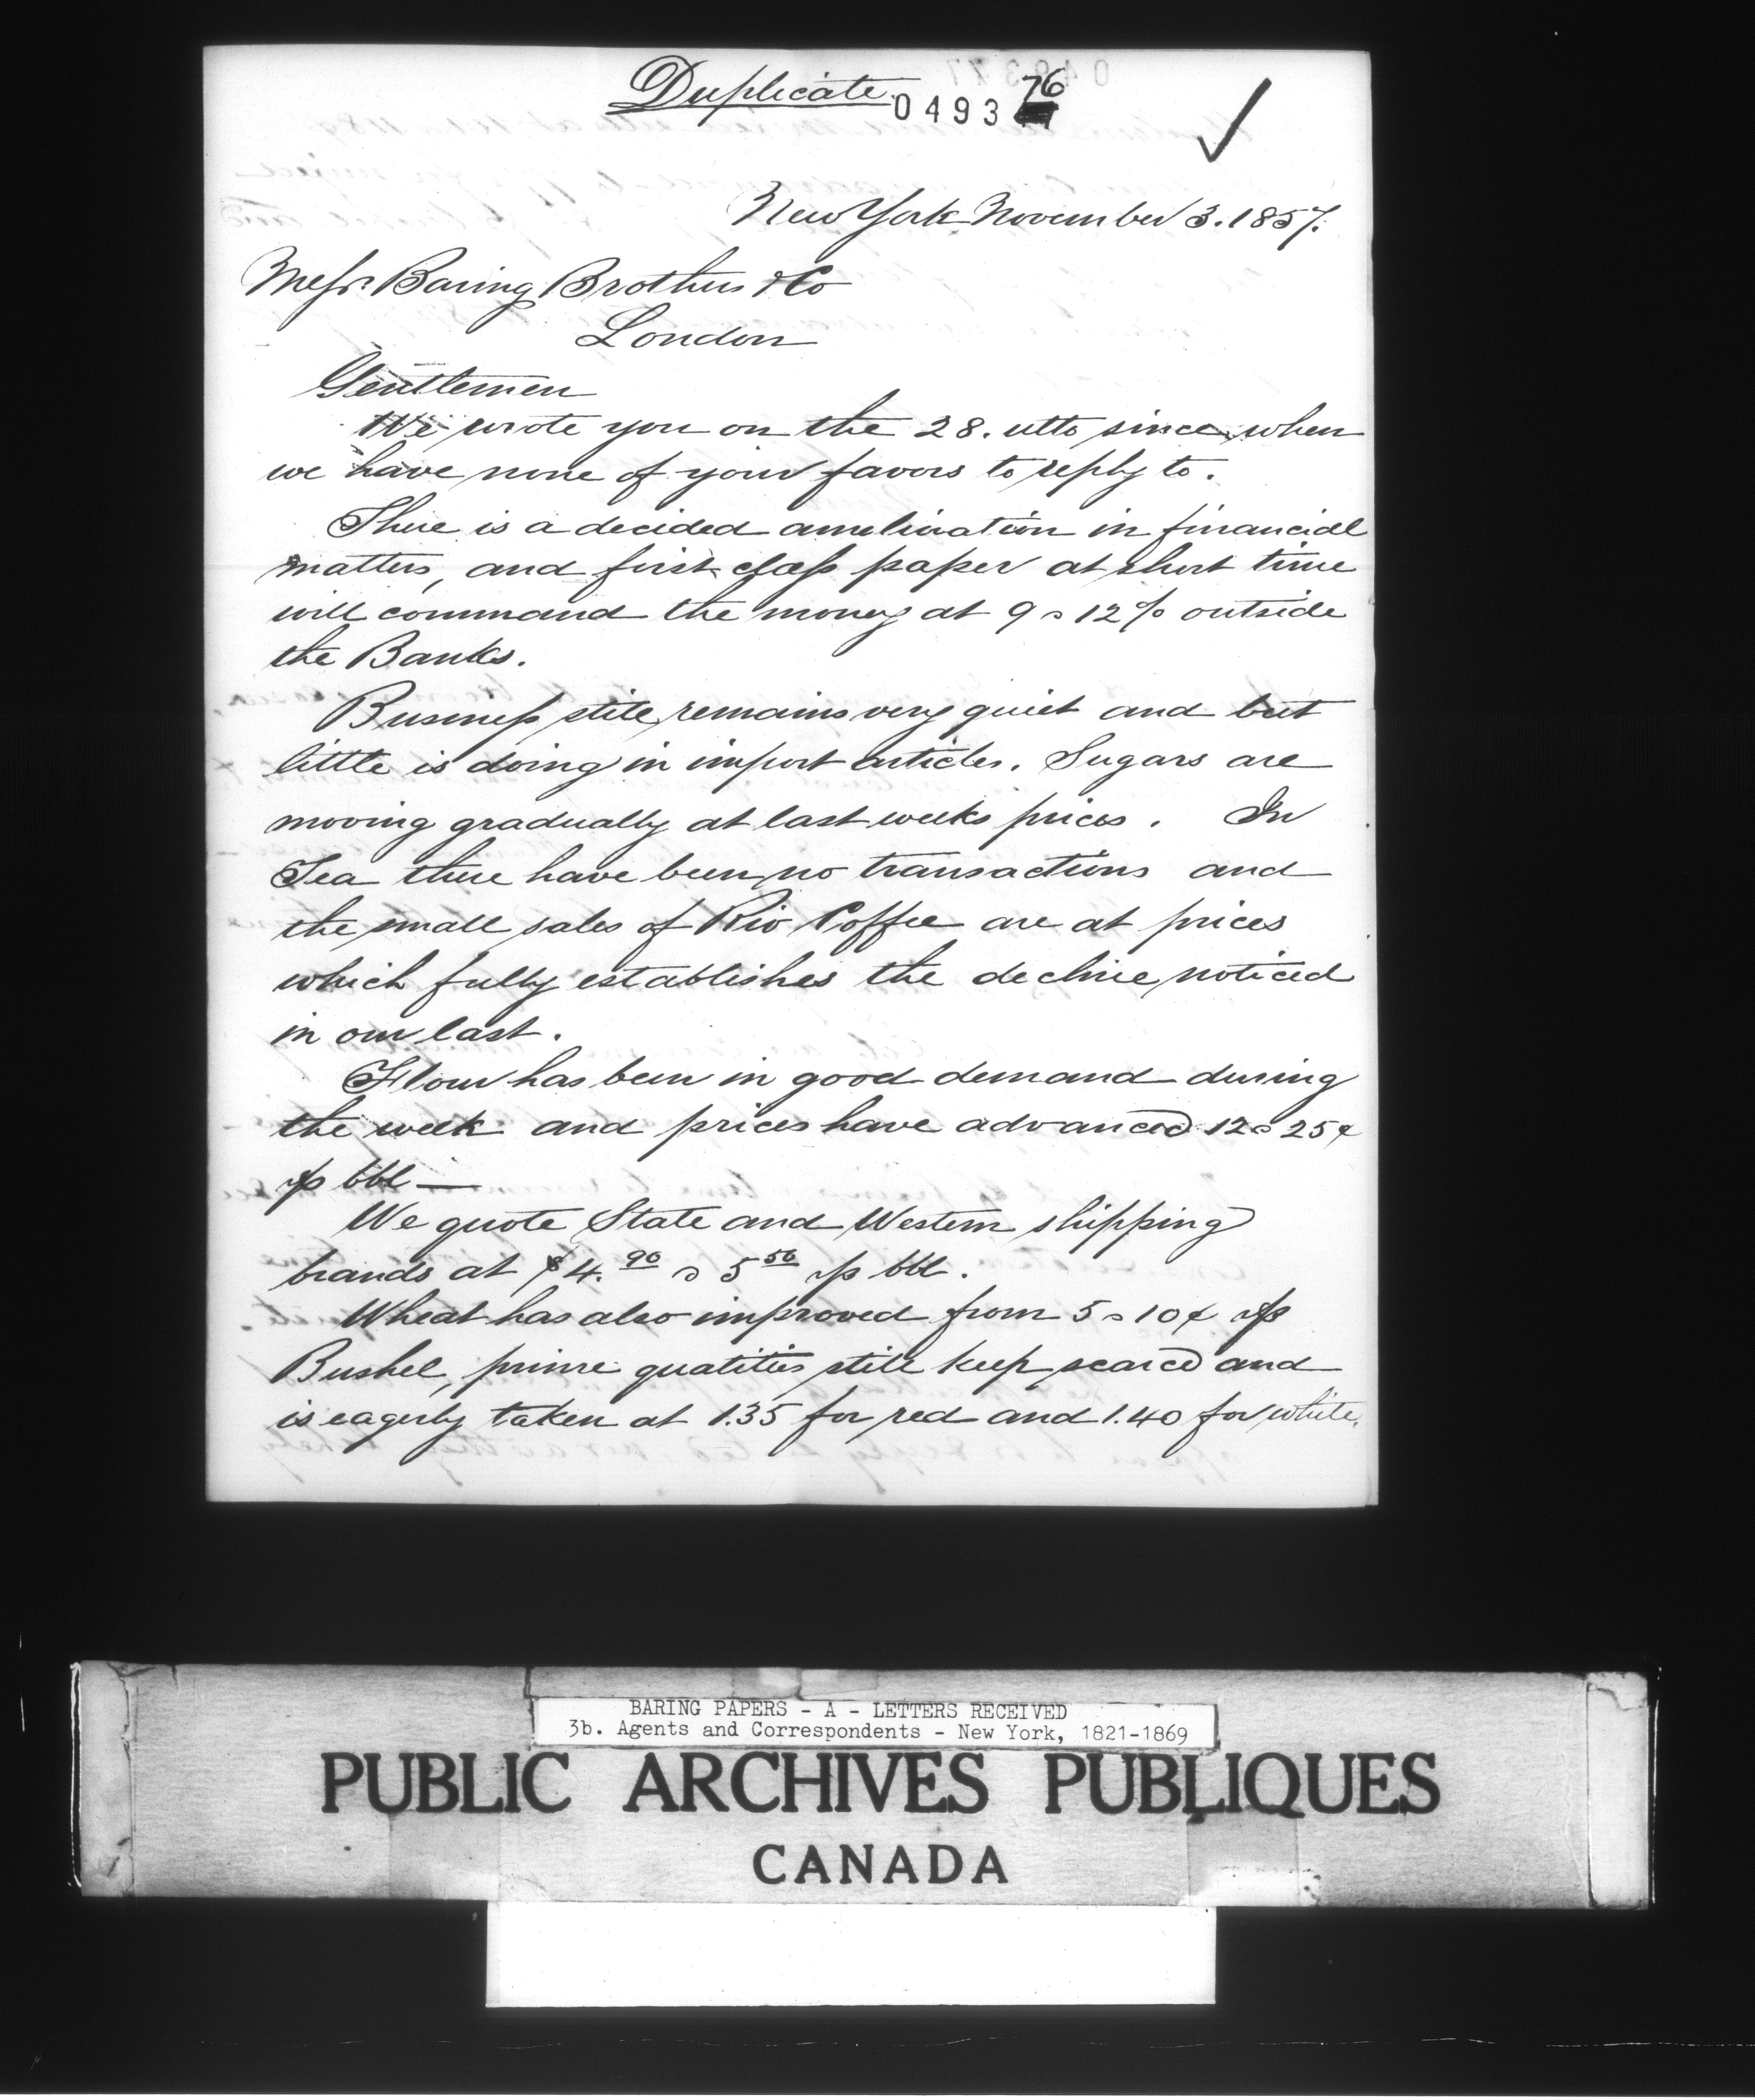 Duplicate
0493 76
New York November 3. 1857.
Messrs. Baring Brothers & Co
London
Gentlemen
We wrote you on the 28. ulto since when
we have none of your favors to reply to.
There is a decided amelioration in financial
matters, and first class paper at short time
will command the money at 9 a 12% outside
the Banks.
Business still remains very quiet and but
little is doing in import articles. Sugars are
moving gradually at last weeks prices. In
Tea there have been no transactions and
the small sales of Rio Coffee are at prices
which fully establishes the decline noticed
in our last.
Flour has been in good demand during
the week and prices have advanced 12 a 25¢
p bbl —
We quote State and Western shipping
brands at $4.90 a 5 50 p bbl.
Wheat has also improved from 5 a 10¢ p
Bushel, prime qualities still keep scarce and
is eagerly taken at 1.35 for red and 1.40 for white.
BARING PAPERS - A - LETTERS RECEIVED
3b. Agents and Correspondents - New York, 1821-1869
PUBLIC ARCHIVES PUBLIQUES
CANADA